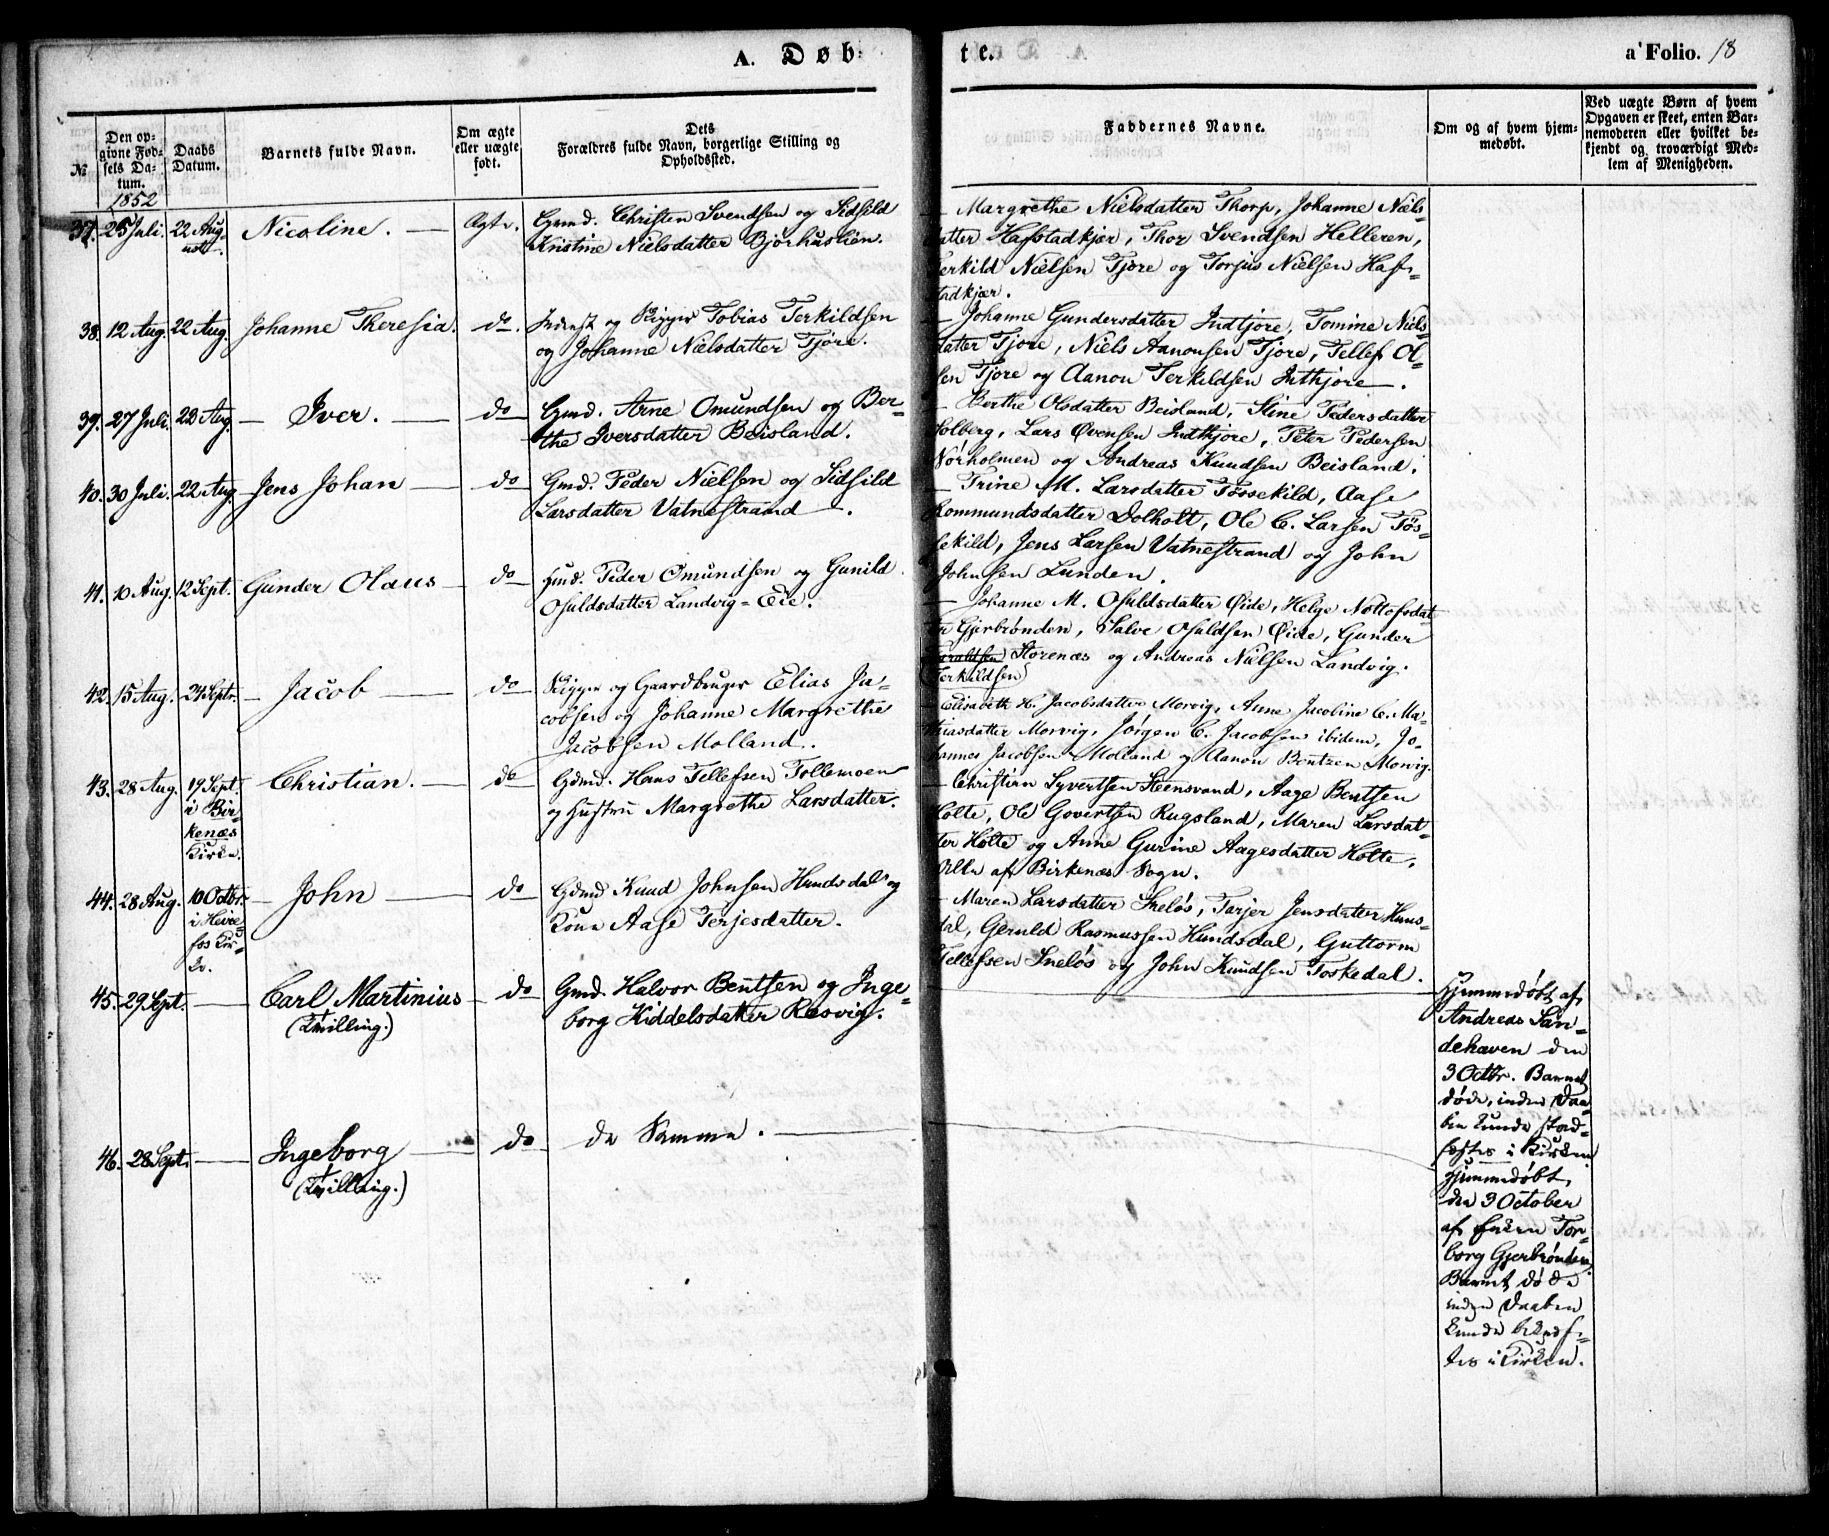 A. Døb-
te.
a' Folio. 18
№
Den opgivne Fødsels Datum.
Daabs Datum.
Barnets fulde Navn.
Om ægte eller uægte født.
Dets Forældres fulde Navn, borgerlige Stilling og Opholdssted.
Faddernes Navne.
Om og af hvem hjemmedøbt.
Ved uægte Børn af hvem Opgaven er skeet, enten Barnemoderen eller hvilket bekjendt og troværdigt Medlem af Menigheden.
1852
37. 25 Juli. 22 August. Nicoline. — Ægte.
Gmd. Christen Svendsen og Sidsild
Kristine Nielsdatter Bjorhuslien.
— Margrethe Nielsdatter Thorp, Johanne Niels-
datter Hafstadkjær, Thor Svendsen Helleren,
Terkild Nielsen Tjore og Torjus Nielsen Haf-
stadkjær.
38. 12 Aug. 22 Aug. Johanne Theresia. do.
Inderst og Rigger Tobias Terkildsen
og Johanne Nielsdatter Tjore.
— Johanne Gundersdatter Indtjore, Tomine Niels-
datter Tjore, Niels Aanonsen Tjore, Tellef Ol-
sen Tjore og Aanon Terkildsen Inthjore.
39. 27 Juli. 22 Aug. — Iver. — do
Gmd. Arne Omundsen og Ber-
the Iversdatter Beisland.
— Berthe Olsdatter Beisland, Stine Pedersdatter
Holberg, Lars Øvensen Indthjore, Peter Pedersen
Nørholmen og Andreas Knudsen Beisland.
40. 30 Juli. 22 Aug Jens Johan — do
Gmd. Peder Nielsen og Sidsild
Larsdatter Vatnestrand.
— Trine M. Larsdatter Tøssekild, Aase
Rommundsdatter Dolholt, Ole C. Larsen Tøs-
sekild, Jens Larsen Vatnestrand og John
Johnsen Lunden.
41. 10 Aug. 12 Sept. Gunder Olaus — do
Huusmd. Peder Omundsen og Gunild
Osuldsdatter Landvig-Eie.
— Johanne M. Osuldsdatter Øide, Helge Nottofsdat-
ter Gjerbrønden, Salve Osuldsen Øide, Gunder
Storenæs og Andreas Nielsen Landvig.
(Terkildsen)
42. 15 Aug. 24 Septr. — Jacob — do
Rigger og Gaardbruger Elias Ja-
cobsen og Johanne Margrethe
Jacobsen Molland.
— Elisabeth H. Jacobsdatter Morvig, Anne Jacobine C. Ma-
thiasdatter Morvig, Jørgen C. Jacobsen ibidem, Jo-
hannes Jacobsen Molland og Aanon Bentzen Morvig.
43. 28 Aug. 19 Sept. i Birkenæs Kirke. Christian. — do
Gdmd. Hans Tellefsen Tollemoen
og Hustru Margrethe Larsdatter.
— Christian Syvertsen Steensvand, Aage Bentsen
Holte, Ole Govertsen Rugsland, Maren Larsdat-
ter Holte og Anne Gurine Aagesdatter Holte,
Alle af Birkenæs Sogn.
44. 28 Aug. 10 Octbr. i Heirefos Kirke. — John — do
Gdmd Knud Johnsen Hundsdal og
Kone Aase Terjesdatter.
— Maren Larsdatter Sneløs, Tarjer Jensdatter Huns-
dal, Geruld Rasmussen Hundsdal, Guttorm
Tellefsen Sneløs og John Knudsen Toskedal.
45. 29 Sept. — Carl Martinius — do
(Tvilling.)
Gmd. Halvor Bentsen og Inge-
borg Kiddelsdatter Resvig.
Hjemmedøbt af
Andreas San-
dehaven den
3 Octbr. Barnet
døde, inden Daa-
ben kunde stad-
fæstes i Kirken
46. 28 Sept. — Ingeborg — do
(Tvilling.)
de Samme. —
Hjemmedøbt,
den 3 October
af Enken Tor-
borg Gjerbrønden.
Barnet døde
inden Daaben
kunde stadfæ-
stes i Kirken.